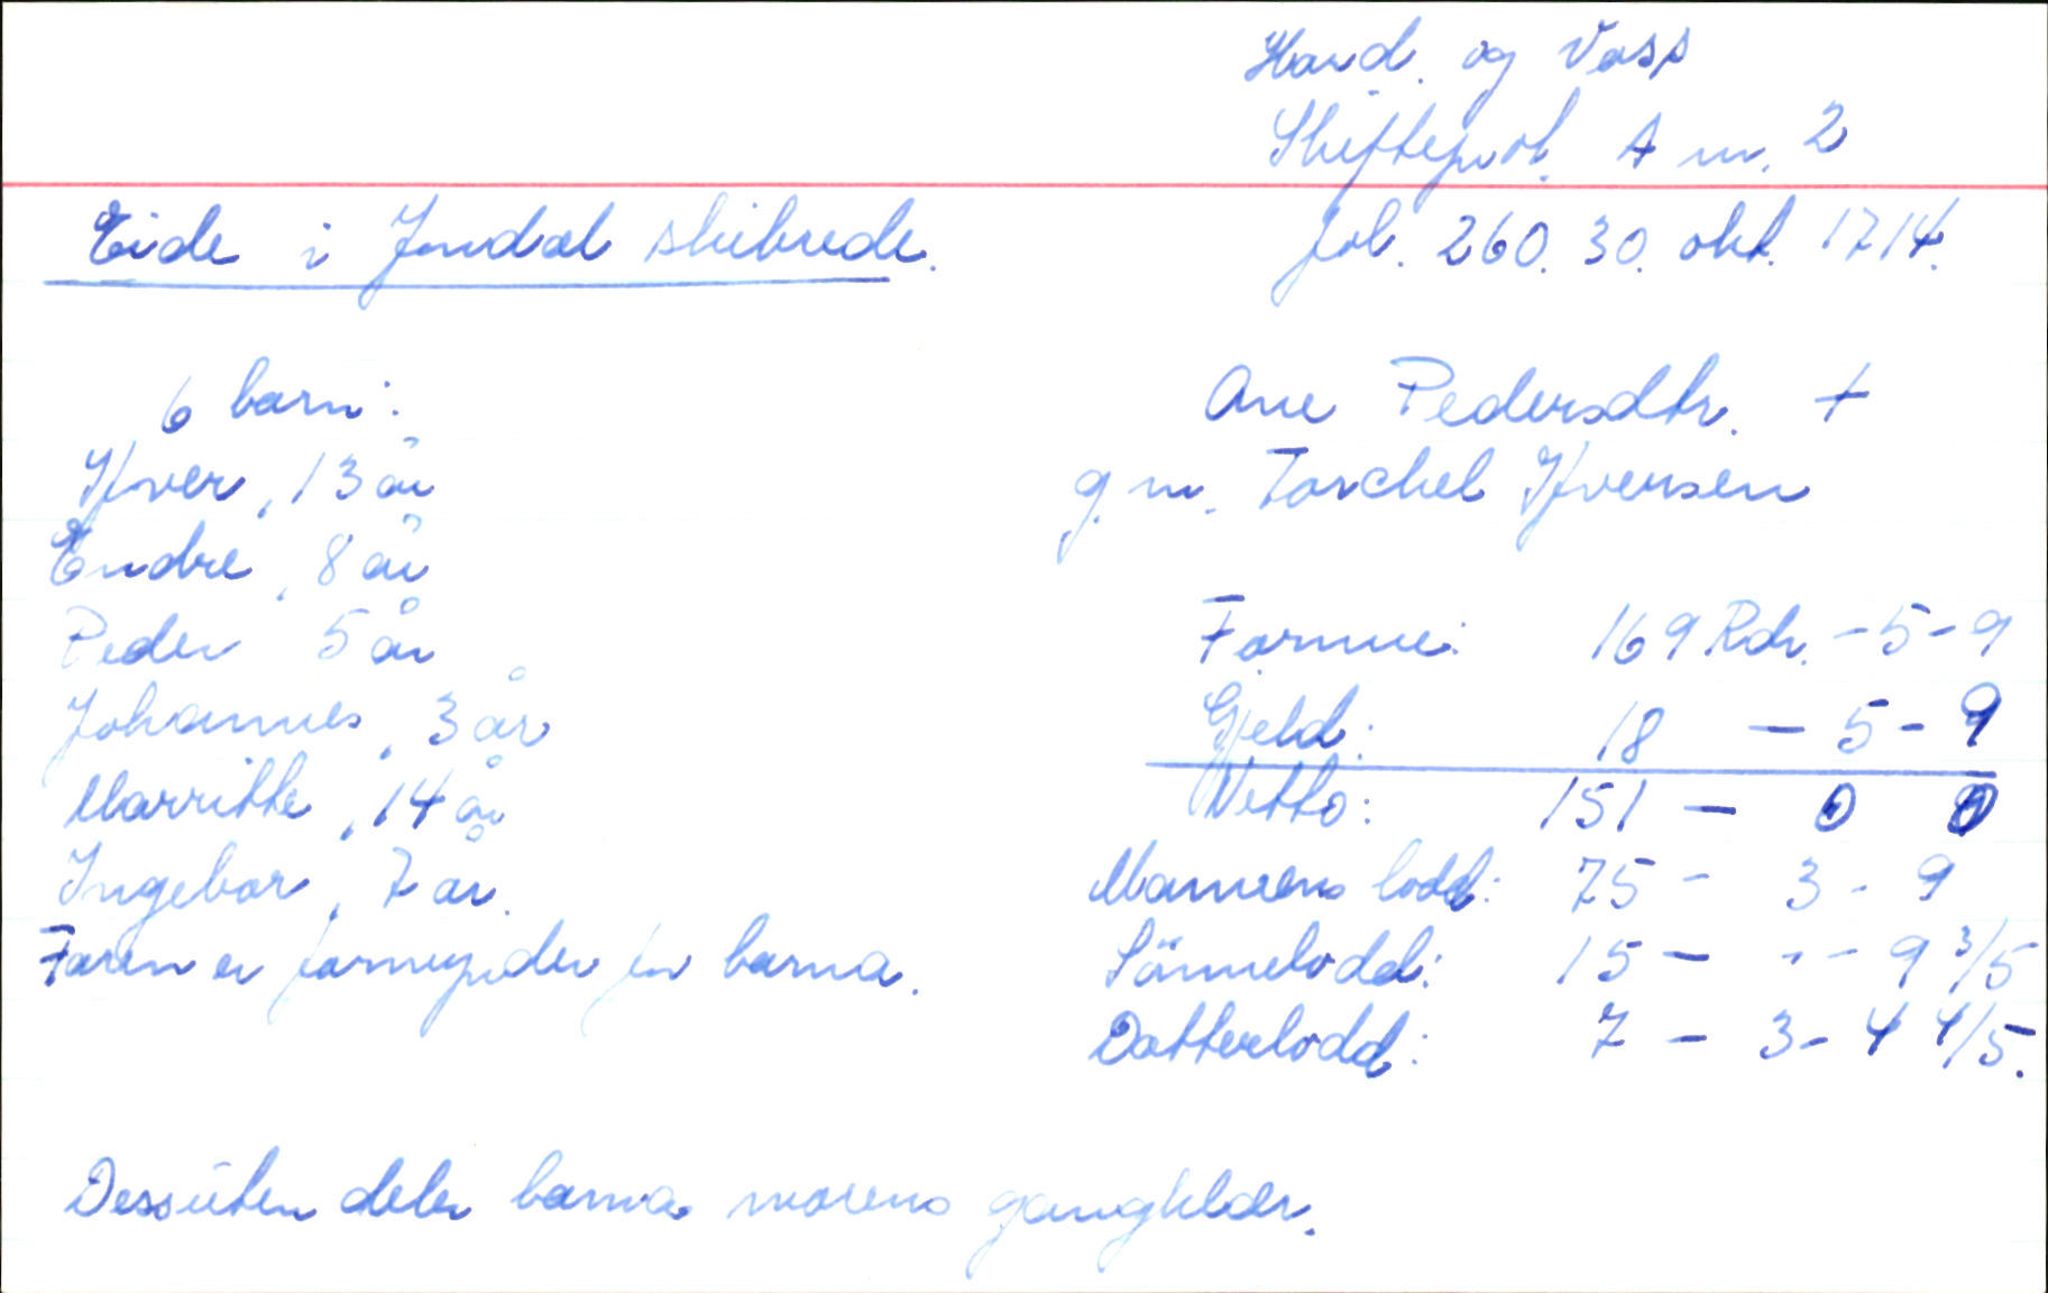 Hard. og Voss
Skifteprot. A nr. 2
fol. 260. 30. okt. 1714.
Eide i Jondal skibrede.
6 barn:
Ifver, 13 år
Endre, 8 år
Peder 5 år
Johannes, 3 år
Marritte, 14 år
Ingebor, 7 år.
Faren er formynder for barna.
Ane Pedersdtr. +
g.m. Torchel Ifversen
Formue: 169 Rdr. - 5 - 9
Gjeld: 18 - 5 - 9
Netto: 151 - 0 0
Mannens lodd: 75 - 3 - 9
Sönnelodd: 15 - - - 9 3/5
Datterlodd: 7 - 3 - 4 4/5.
Dessuten deler barna morens gangklær.